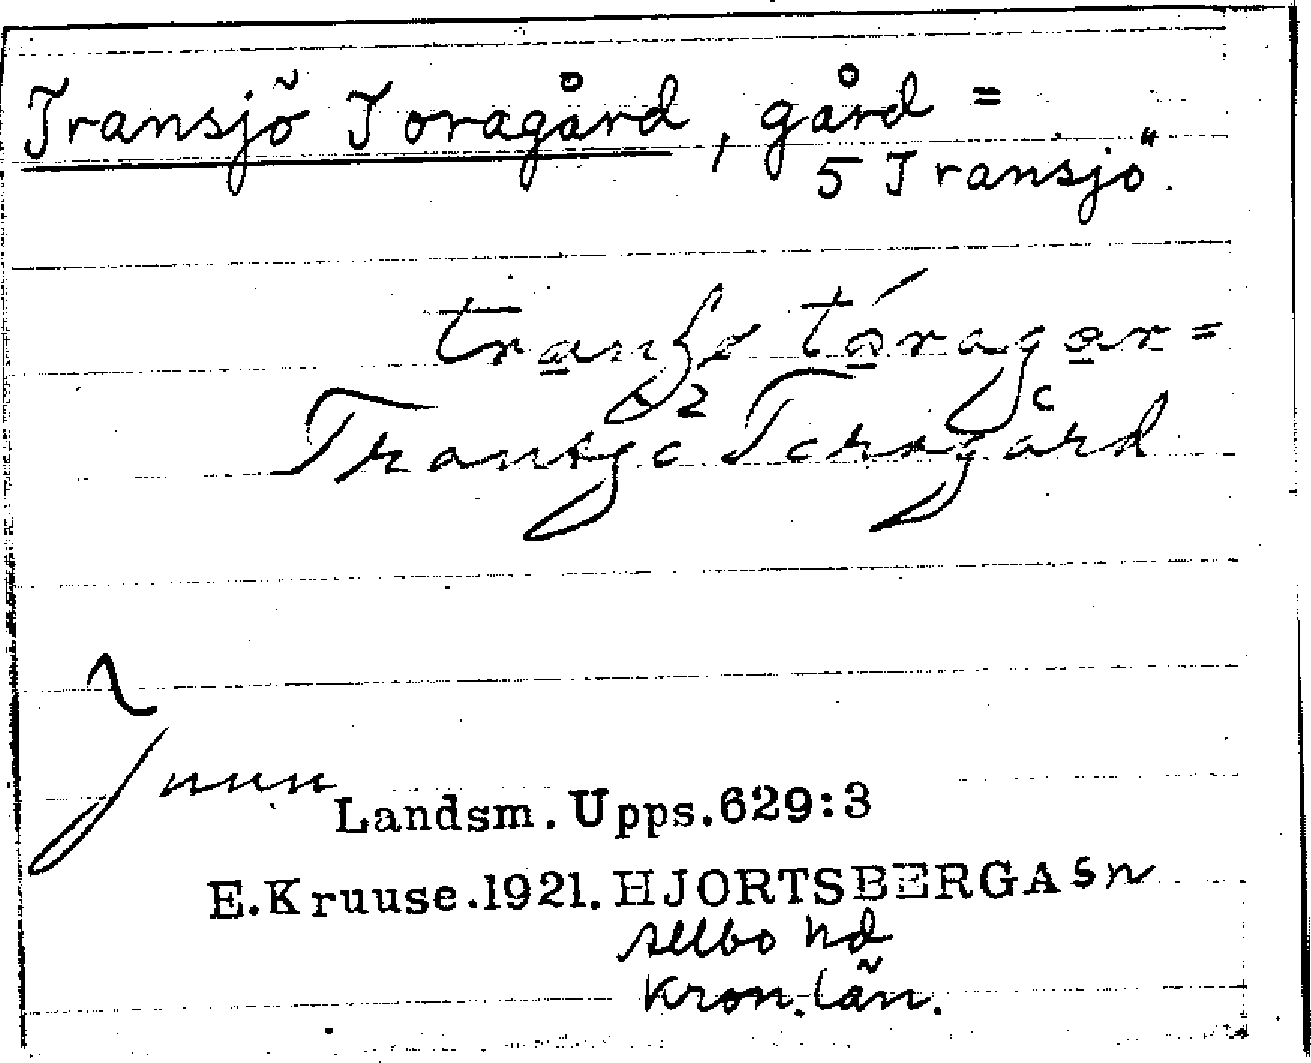 Transjö Toragård, gård =
5 Transjö
Transjö Toragård
Landsm. Upps. 629:3
E. Kruuse. 1921. HJORTSBERGA sn
Allbo hd
Kron. län.